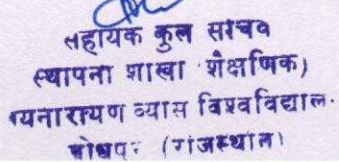 सहायक कुल सचिव
स्थापना शाखा शैक्षणिक)
यनारायण व्यास विश्वविद्याल
जोधपुर (राजस्थान)